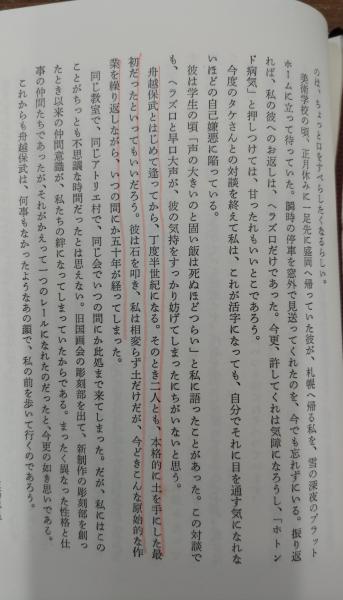 のは、ちょっと口をすべらしたくなるらしい。
美術学校の頃、正月休みに一足先に盛岡へ帰っていた彼が、札幌へ帰る私を、雪の深夜のプラット
ホームに立って待っていた。瞬時の停車を窓外で見送ってくれたのを、今でも忘れずにいる。振り返
れば、私の彼へのお返しは、ヘラズ口だけであった。今更、許してくれは気障になろうし、「ホトン
ド病気」と押しつけては、甘ったれもいいとこであろう。
今度のタケさんとの対談を終えて私は、これが活字になっても、自分でそれに目を通す気になれな
いほどの自己嫌悪に陥っている。
彼は学生の頃「声の大きいのと固い飯は死ぬほどつらい」と私に語ったことがあった。この対談で
も、ヘラズ口と早口大声が、彼の気持をすっかり妨げてしまったにちがいないと思う。
舟越保武とはじめて逢ってから、丁度半世紀になる。そのとき二人とも、本格的に土を手にした最
初だったといってもいいだろう。彼は石を叩き、私は相変らず土だけだが、今どきこんな原始的な作
業を繰り返しながら、いつの間にか五十年が経ってしまった。
同じ教室で、同じアトリエ村で、同じ会でいつの間にか此処まで来てしまった。だが、私にはこの
ことがちっとも不思議な時間だったとは思えない。旧国画会の彫刻部を出て、新制作の彫刻部を創っ
たとき以来の仲間意識が、私たちの絆になってしまっていたからである。まったく異なった性格と仕
事の仲間たちであったが、それがかえって一つのレールになれたのだったと、今更の如き思いである。
これからも舟越保武は、何事もなかったようなあの顔で、私の前を歩いて行くのであろう。